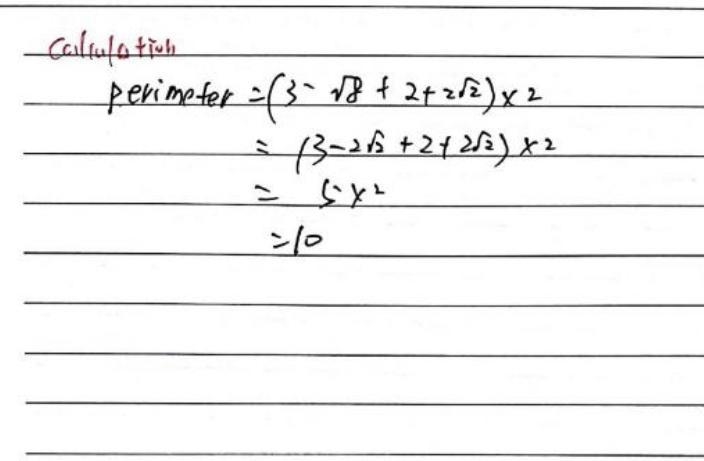 Calculation
perimeter = (3 - √8 + 2 + 2√2) × 2
= (3 - 2√2 + 2 + 2√2) × 2
= 5 × 2
= 10